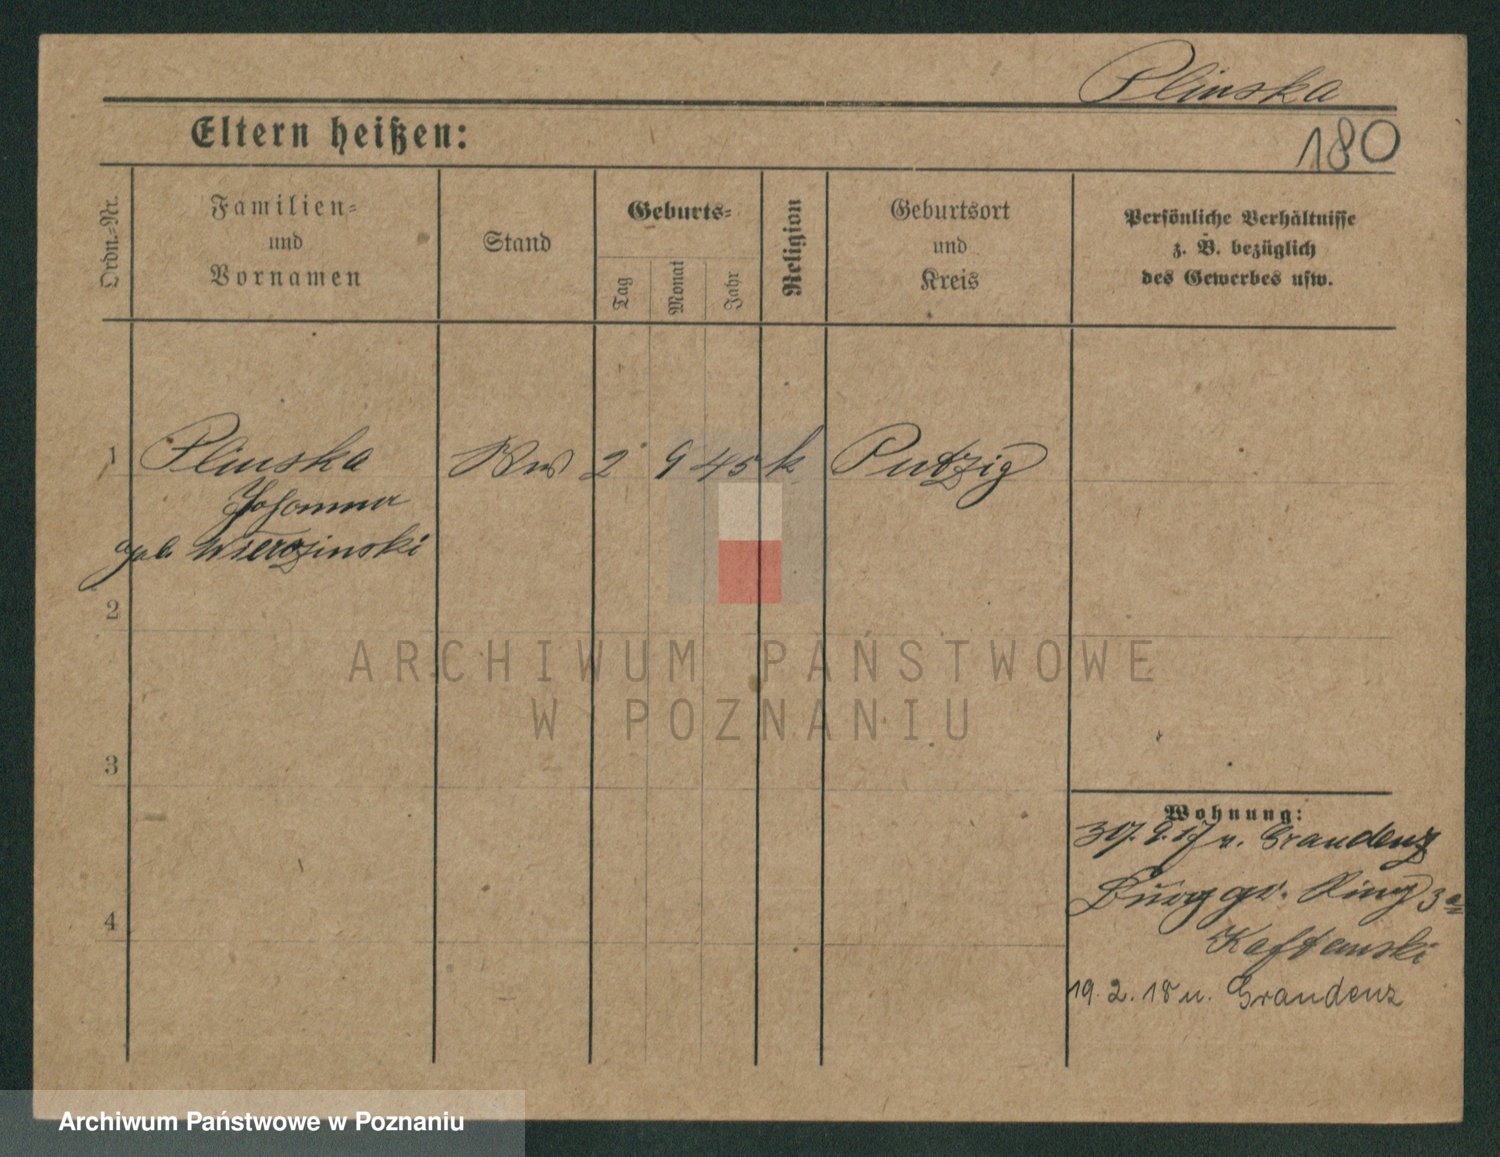 Plinska
Eltern heißen:
180
Ordn.-Nr.
Familien-
und
Vornamen
Stand
Geburts-
Tag
Monat
Jahr
Religion
Geburtsort
und
Kreis
Persönliche Verhältnisse
z. B. bezüglich
des Gewerbes usw.
1 Plinska Ww 2 9 45 k Putzig
Johanna
geb. Wierozinski
2
3
4
Wohnung:
30. 9. 17 v. Graudenz
Burg gr. Ring 3a
Kaftanski
19. 2. 18 n. Graudenz
ARCHIWUM PAŃSTWOWE
W POZNANIU
Archiwum Państwowe w Poznaniu